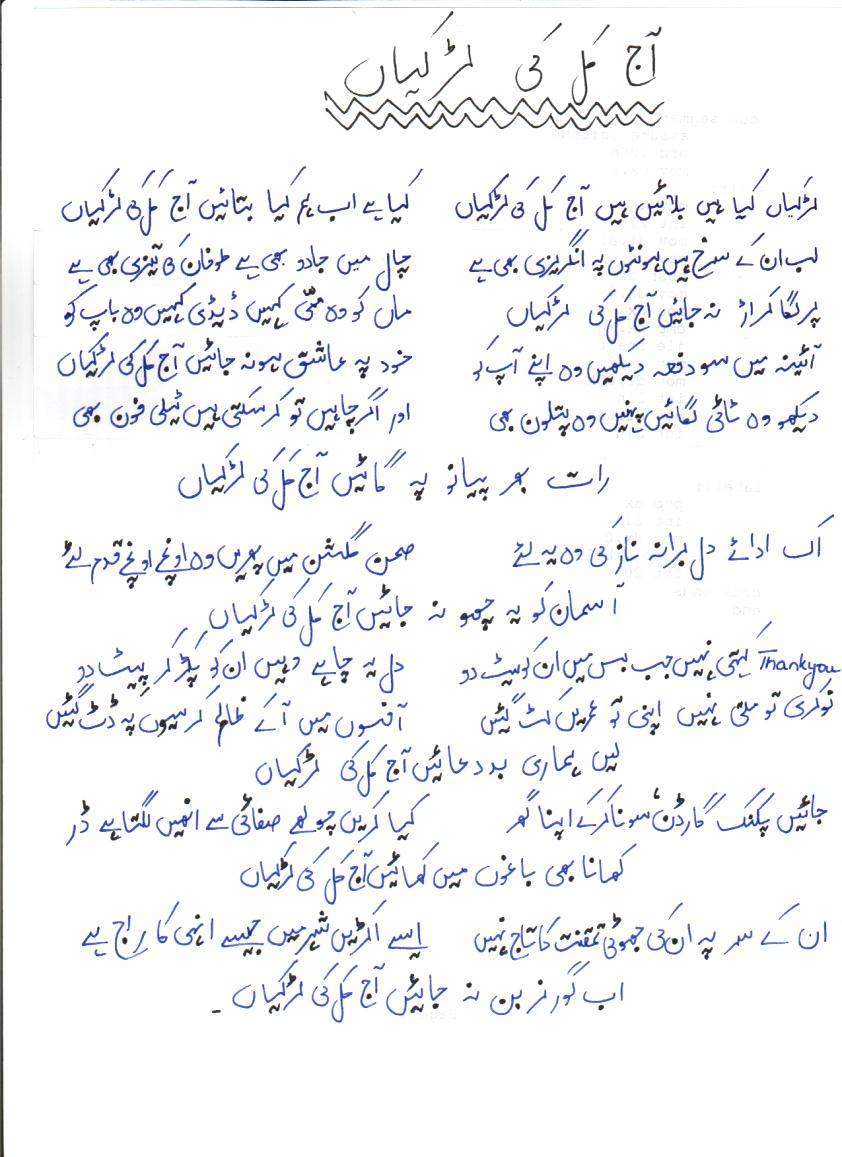 آج کل کی لڑکیاں
لڑکیاں کیا ہیں بلائیں ہیں آج کل کی لڑکیاں کیا ہے اب ہم کیا بتائیں آج کل کی لڑکیاں
لب ان کے سرخ ہیں ہونٹوں پہ انگریزی بھی ہے چال میں جادو بھی ہے طوفان کی تیزی بھی ہے
پر لگا کر اڑ نہ جائیں آج کل کی لڑکیاں ماں کو وہ ممّی کہیں ڈیڈی کہیں وہ باپ کو
آئینہ میں سو دفعہ دیکھیں وہ اپنے آپ کو خود پہ عاشق ہو نہ جائیں آج کل کی لڑکیاں
دیکھو وہ ٹائی لگائیں پہنیں وہ پتلون بھی اور اگر چاہیں تو کر سکتی ہیں ٹیلی فون بھی
رات بھر پیانو پہ گائیں آج کل کی لڑکیاں
اک ادائے دل برانہ ناز کی وہ یہ لئے صحن گلشن میں پھریں وہ اونچے اونچے قدم لئے
آسمان کو یہ چھو نہ جائیں آج کل کی لڑکیاں
Thankyou کہتی نہیں جب بس میں ان کو سیٹ دو دل یہ چاہے وہیں ان کو پکڑ کر پیٹ دو
نوکری تو ملتی نہیں اپنی تو عمریں کٹ گیئں آفسوں میں آ کے ظالم کرسیوں پہ ڈٹ گیئں
لیں ہماری بددعائیں آج کل کی لڑکیاں
جائیں پکنک گارڈن، سونا کر کے اپنا گھر کیا کریں چولھے صفائی سے انھیں لگتا ہے ڈر
کھانا بھی باغوں میں کھائیں آج کل کی لڑکیاں
ان کے سر پہ ان کی جھوٹی تمقنت کا تاج نہیں ایسے اکڑیں شہر میں جیسے انہی کا راج ہے
اب گورنر بن نہ جائیں آج کل کی لڑکیاں ۔